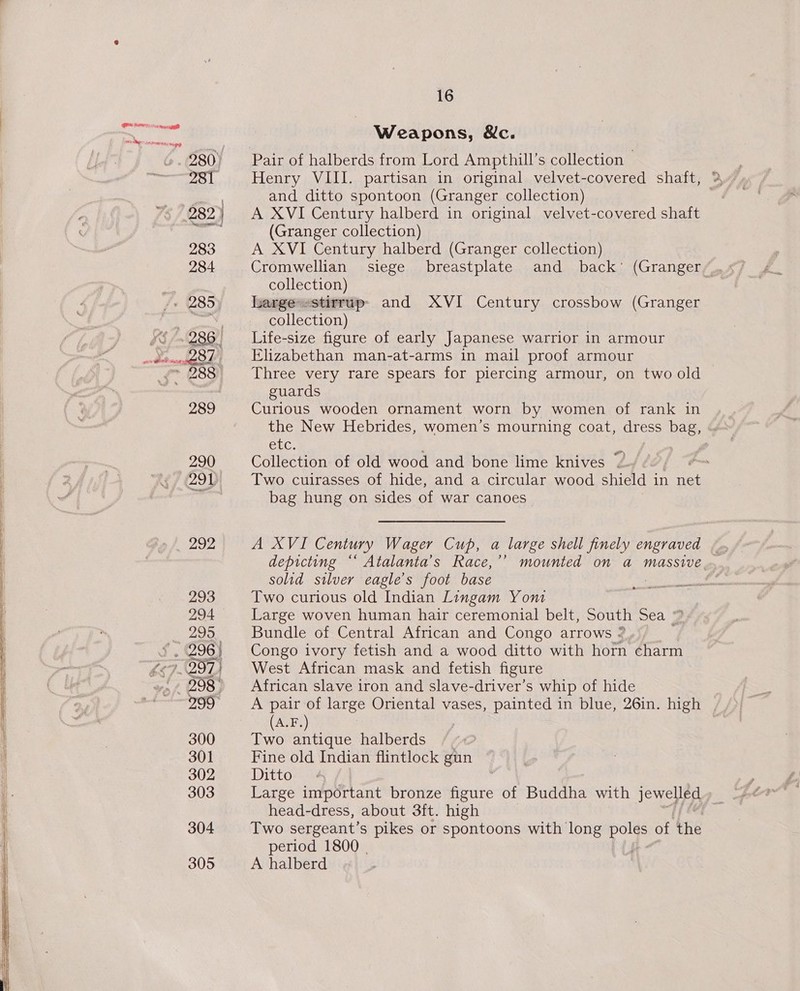 16
Weapons, &c.
280 Pair of halberds from Lord Ampthill's collection
281 Henry VIII. partisan in original velvet-covered shaft,
and ditto spontoon (Granger collection)
282 A XVI Century halberd in original velvet-covered shaft
(Granger collection)
283 A XVI Century halberd (Granger collection)
284 Cromwellian siege breastplate and back (Granger
collection)
285 Large stirrup and XVI Century crossbow (Granger
collection)
286 Life-size figure of early Japanese warrior in armour
287 Elizabethan man-at-arms in mail proof armour
288 Three very rare spears for piercing armour, on two old
guards
289 Curious wooden ornament worn by women of rank in
the New Hebrides, women's mourning coat, dress bag,
etc.
290 Collection of old wood and bone lime knives
291 Two cuirasses of hide, and a circular wood shield in net
bag hung on sides of war canoes
292 A XVI Century Wager Cup, a large shell finely engraved
depicting “Atalanta's Race,” mounted on a massive
solid silver eagle's foot base
293 Two curious old Indian Lingam Yoni
294 Large woven human hair ceremonial belt, South Sea
295 Bundle of Central African and Congo arrows
296 Congo ivory fetish and a wood ditto with horn charm
297 West African mask and fetish figure
298 African slave iron and slave-driver's whip of hide
299 A pair of large Oriental vases, painted in blue, 26in. high
(A.F.)
300 Two antique halberds
301 Fine old Indian flintlock gun
302 Ditto
303 Large important bronze figure of Buddha with jewelled
head-dress, about 3ft. high
304 Two sergeant's pikes or spontoons with long poles of the
period 1800
305 A halberd